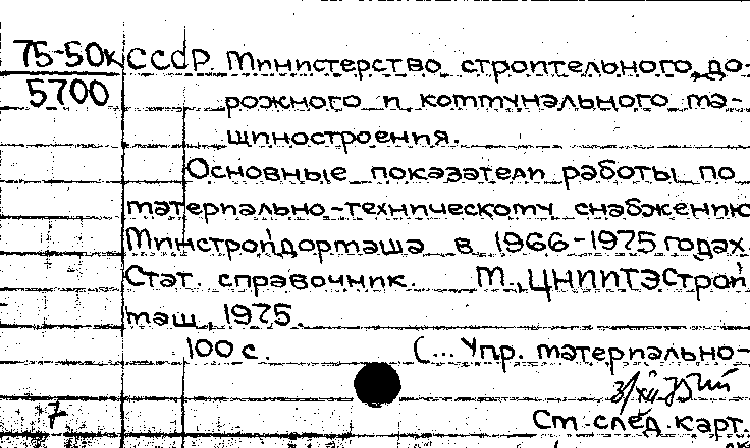 75-50к СССР. Министерство строительного, до-
5700 рожного и коммунального ма-
шиностроения.
Основные показатели работы по
материально-техническому снабжению
Минстройдормаша в 1966-1975 годах.
Стат. справочник. М., ЦНИИТЭСтрой
маш, 1975.
100 с. (... Упр. материально-
7 См. след. карт.